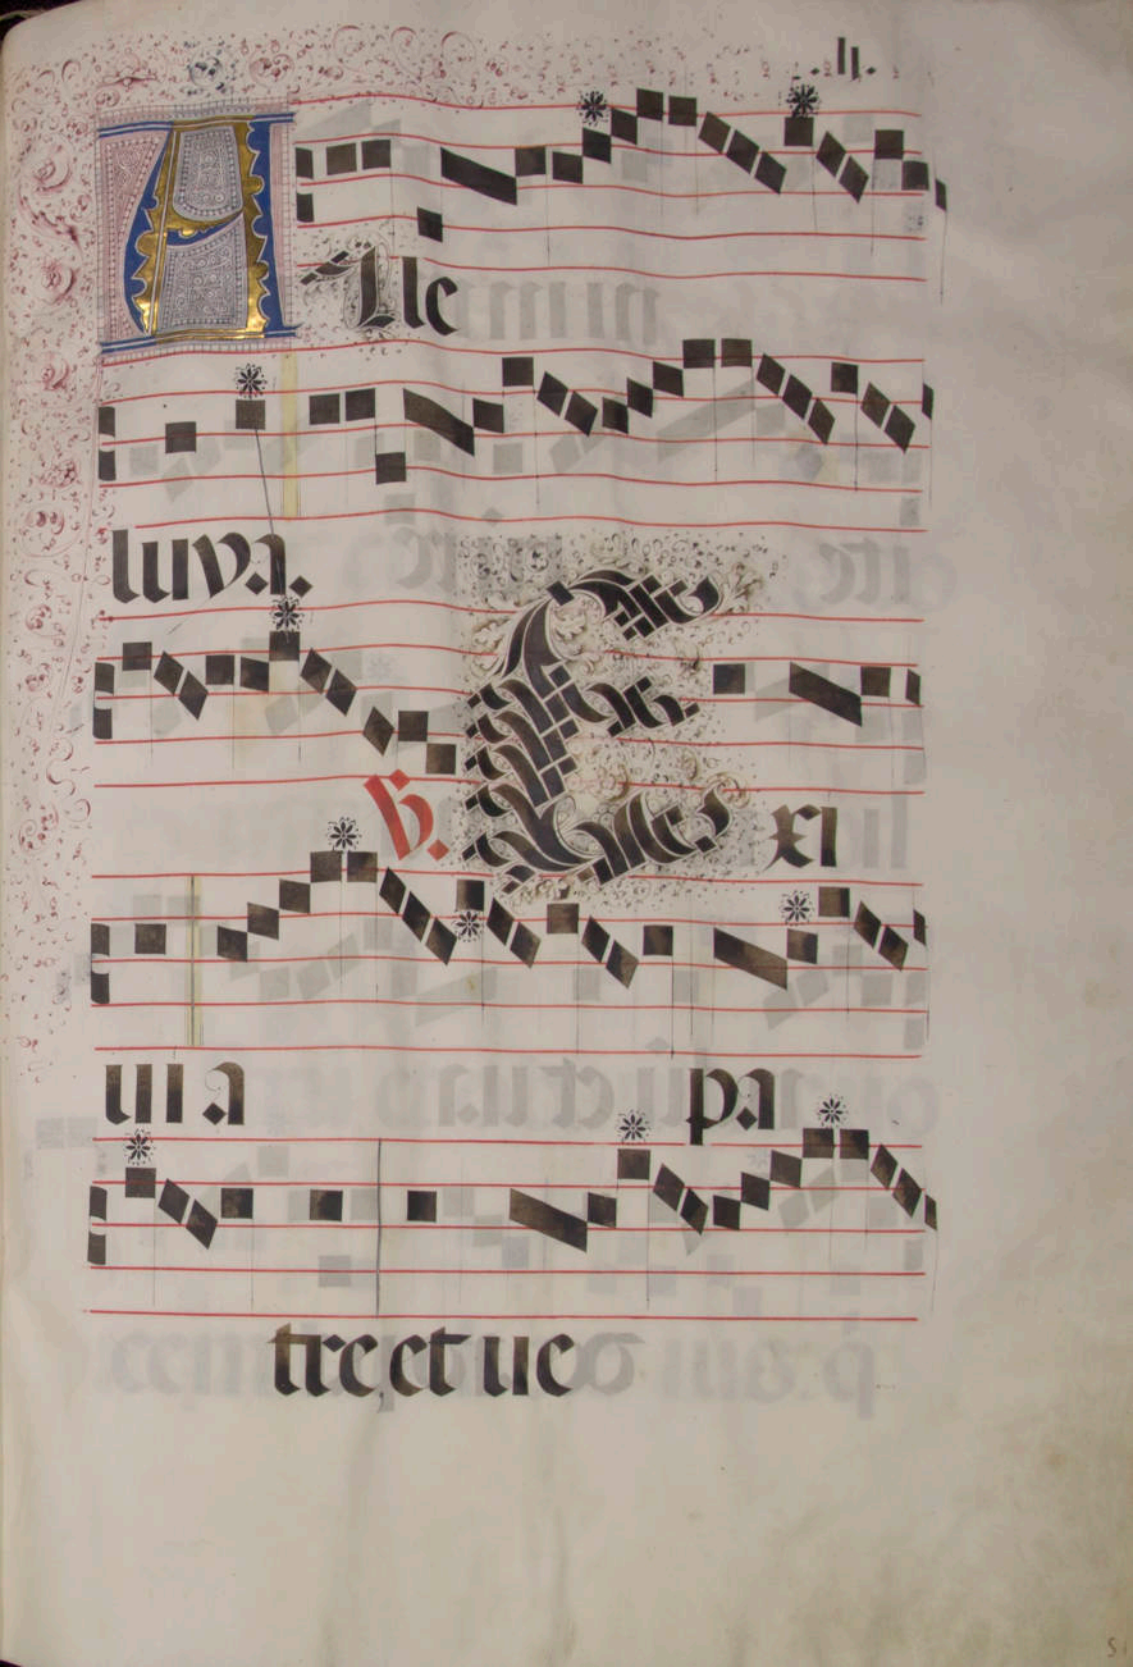 .ii.
Alle
luya.
℣. Exi
ui a pa
tre, et ue